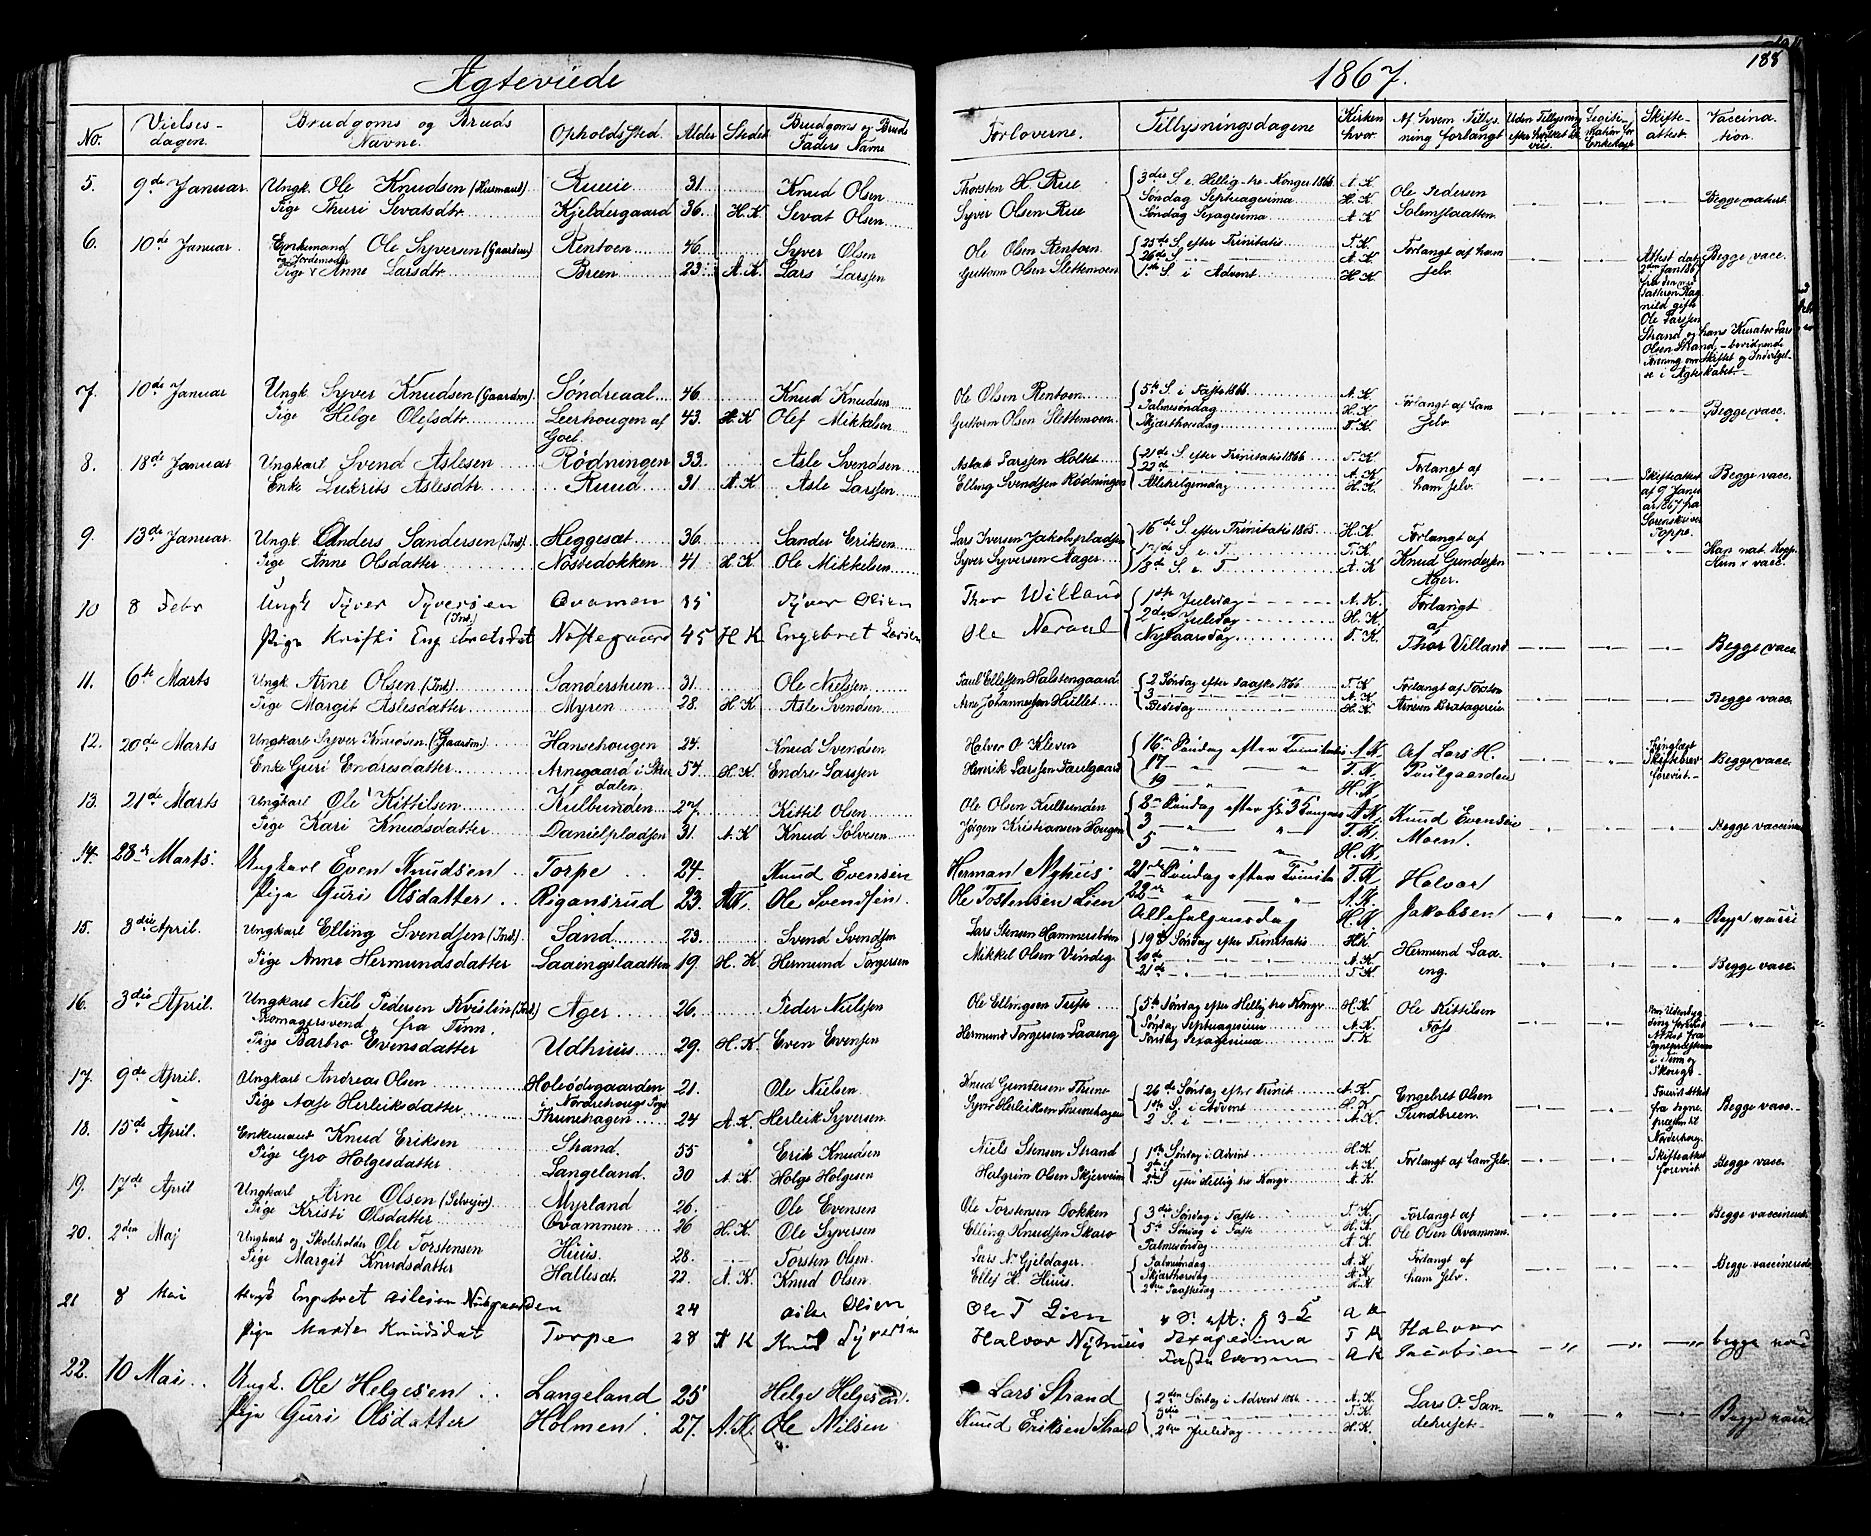 Ægteviede
1867.
188
No.
Vielses-
dagen.
Brudgoms og Bruds
Navne.
Opholds Sted.
Alder
Stedet
Brudgoms og Bruds
Faders Navne
Forloverne.
Tillysningsdagene
Kirken
hvor.
Af hvem Tillys-
ning forlangt
Uden Tillysning
Skifte-
attest.
Vaccina-
tion.
5. 9de Januar. Ungk. Ole Knudsen (Husmand) Ruuie 31 Knud Olsen Thorsten H. Rue 3die S. e. Hellig-tre-Konger 1866 A. K Ole Pedersen
Pige Thuri Sevatsdtr. Kjeldergaard 36. H. K Sevat Olsen Syver Olsen Rue Søndag Septuagesima H. K. Begge naturl.
Søndag Sexagesima A. K
6. 10de Januar. Enkemand Ole Syversen (Gaardm) Rentoen 46 Syver Olsen Ole Olsen Rentoen 25de S. efter Trinitatis T. K. Forlangt af ham
Pige Anne Larsdtr. Breen 23. A. K Lars Larssen Guttorm Olsen Slettemoen 26de S. A. K selv. Begge vacc.
1ste S. i Advent H. K
Strand og hans Kurator Lars
Olsen Strand,
7. 10de Januar Ungk. Syver Knudsen (Gaardm) Søndreaal 46 Knud Knudsen Ole Olsen Rentoen 5te S. i Faste 1866 A. K. Forlangt af ham
Pige Helge Olefsdtr. Leerhougen af 43. H K Olef Mikkelsen Guttorm Olsen Slettemoen Palmesøndag H. K selv. Begge vacc.
Goel. Skjærthorsdag T. K
8. 18de Januar Ungkarl Svend Aslesen Rødningen 33 Asle Svendsen Aslak Larssen Holtet 21de S. efter Trinitatis 1866 T. K Forlangt af
Enke Asledtr. Ruud 31 A. K Asle Larssen Elling Svendsen Rødningen 22de A. K ham selv. Skifteattest Begge vacc.
Allehelgensdag H. K. af 9 Janu-
ar 1867 fra
Sorenskriver
9. 13de Januar. Ungk. Anders Sandersen (Ind) Heggesæt 36 Sander Eriksen Lars Iversen Jakobspladsen 16de S. efter Trinitatis 1865 H. K Forlangt af
Pige Anne Olsdatter Nøstedokken 41 H K Ole Mikkelsen Syver Syversen Aager 17de S. e. T. T. K Knud Gundersen Han nat. Kopp.
18de S. e. T A. K Ager. Hun v vacc.
10 8 Febr Ungk Syver Syversen Qvamen 35 Syver Olsen Thor Willand 1ste Juledag A. K. Forlangt
(Ind.) 2den Juledag H. K. af
Pige Kristi Engebretsdat Nøstegaard 45 H K Engebret Larsen Ole Noraal Nytaarsdag T. K Thor Villand Begge vacc.
11. 6te Marts Ungk. Arne Olsen (Ind) Sanderstuen 31 Ole Nielssen Paul Ellefsen Halstengaard 2 Søndag efter Paaske 1866 T. K Forlangt af Torsten
Pige Margit Aslesdatter Myren 28. H K Asle Svendsen Arne Johannessen Hullet 3 A. K Arnesen Bratagereie Begge vacc.
Bededag H. K
12. 20de Marts Ungkarl Syver Knudsen (Gaardm) Hansehougen 24. Knud Svendsen Halvor O Kleven 16de Søndag efter Trinitatis A. K. Af Lars H. Tinglæst
Enke Guri Endresdatter Arnegaard i Sku- 54 H K Endre Larssen Henrik Larssen Paulgaard 17 T. K. Poulgaarden Skiftebrev Begge vacc.
dalen 19 H. K. forevist.
13. 21de Marts Ungkarl Ole Kittilsen Kulbunden 27. Kittil Olsen Ole Olsen Kulbunden 2den Søndag efter A. K. Knud Evensen
Pige Kari Knudsdatter Danielpladsen 31. A. K Knud Sølvesen Jørgen Kristiansen Hougen 3 T. K. Moen. Begge vaccineret
5 H. K.
14. 28de Marts. Ungkarl Even Knudsen Torpe 24. Knud Evensen Herman Nyhus 21de Søndag efter Trinitat T. K Halvor
Pige Guri Olsdatter Rigansrud 23. Ole Svendsen. Ole Tostensen Lien 22de A. K. Jakobsen Begge vacci
Allehelgensdag H. K
15. 3die April. Ungkarl Elling Svendsen (Ind) Sand 23. Svend Svendsen Lars Stensen Hammersbøen 19de Søndag efter Trinitatis H. K. Hermund Saa-
Pige Anne Hermundsdatter Saaingslaatten 19. H. K Hermund Torgersen Mikkel Olsen Vindeg 20de A. K eng. Begge vacc.
21de T. K
16. 3die April. Ungkarl Niels Pedersen Kvislin (Ind) Ager 26. Peder Nielssen Ole Ellingsen Tufte 5te Søndag efter Hellig tre Kongr H. K. Ole Kittilsen
Skomagersvend fra Tinn. Søndag Septuagesima A. K. Foss
Pige Barbro Evensdatter Udhuus 29. H. K Even Evensen Hermund Torgersen Saaeng Søndag Sexagesima T. K
17. 9de April. Ungkarl Andreas Olsen Holeødegaarden 21. Ole Nielsen Knud Gundersen Thune 26de Søndag efter Trinit. A. K. Engebret Olsen
Pige Aase Herleiksdatter i Nordrehougs Prgj. Herleik Syversen Syver Herleiksen Thunehagen 1ste S. i Advent H. K. Sundbreen. Begge vacc.
Thunehagen 24 A. K. 2 S. i A. K.
18. 15de April. Enkemand Knud Eriksen Strand. 55 Erik Knudsen Niels Stensen Strand 1ste Søndag i Advent H. K
Pige Gro Holgesdatter Langeland. 30 A. K Holge Holgesen Halgrim Olsen Skjervheim 2den S. A. K Forlangt af ham selv. Skifteattest Begge vacc.
2de S. efter Hellig tre Kongr. A. K. forevist.
19. 17de April Ungkarl Arne Olsen (Selveier) Myrland 26. Ole Evensen Ole Torstensen Dokken 3die Søndag i Faste T. K Forlangt af
Pige Kristi Olsdatter Qvammen 26 H. K Ole Syversen Elling Knudsen Skaro 5te Søndag i Faste H. K Ole Olsen Qvammen. Begge vaccineret.
Palmesøndag A. K
20. 2den Maj Ungkarl og Skoleholder Ole Torstensen Huus. 28. Torsten Olsen. Lars N. Gjeldager. Palmesøndag A. K Forlangt af
Pige Margit Knudsdatter Hallesæt. 22. A. K Knud Olsen Ellef H. Huus. Skjærthorsdag A. K ham selv. Begge vaccinerede
2den Paaskedag H. K
21 8 Mai Ungk Engebret Aslesen Nubgaarden 24 Asle Olsen Ole T Lien S. eft: A K Halvor
Pige Marte Knudsdat Torpe 28 A K Knud Syversen Halvor Nyhuus Sexagesima T K Jacobsen begge vacc
Fastelavnen A K
22. 10 Mai Ungk. Ole Helgesen Langeland 25 Helge Helgesen. Lars Strand 2den Søndag i Advent 1866 A. K. Lars O. San-
Pige Guri Olsdatter Holmen 27. A. K. Ole Nilsen Knud Eriksen Strand 3die T. K. derset. Begge vacc
2den Juledag H. K